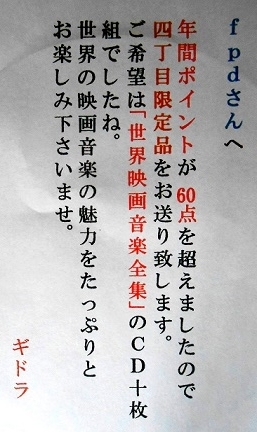 fpdさんへ
年間ポイントが60点を超えましたので
四丁目限定品をお送り致します。
ご希望は「世界映画音楽全集」のCD十枚
組でしたね。
世界の映画音楽の魅力をたっぷりと
お楽しみ下さいませ。
ギドラ